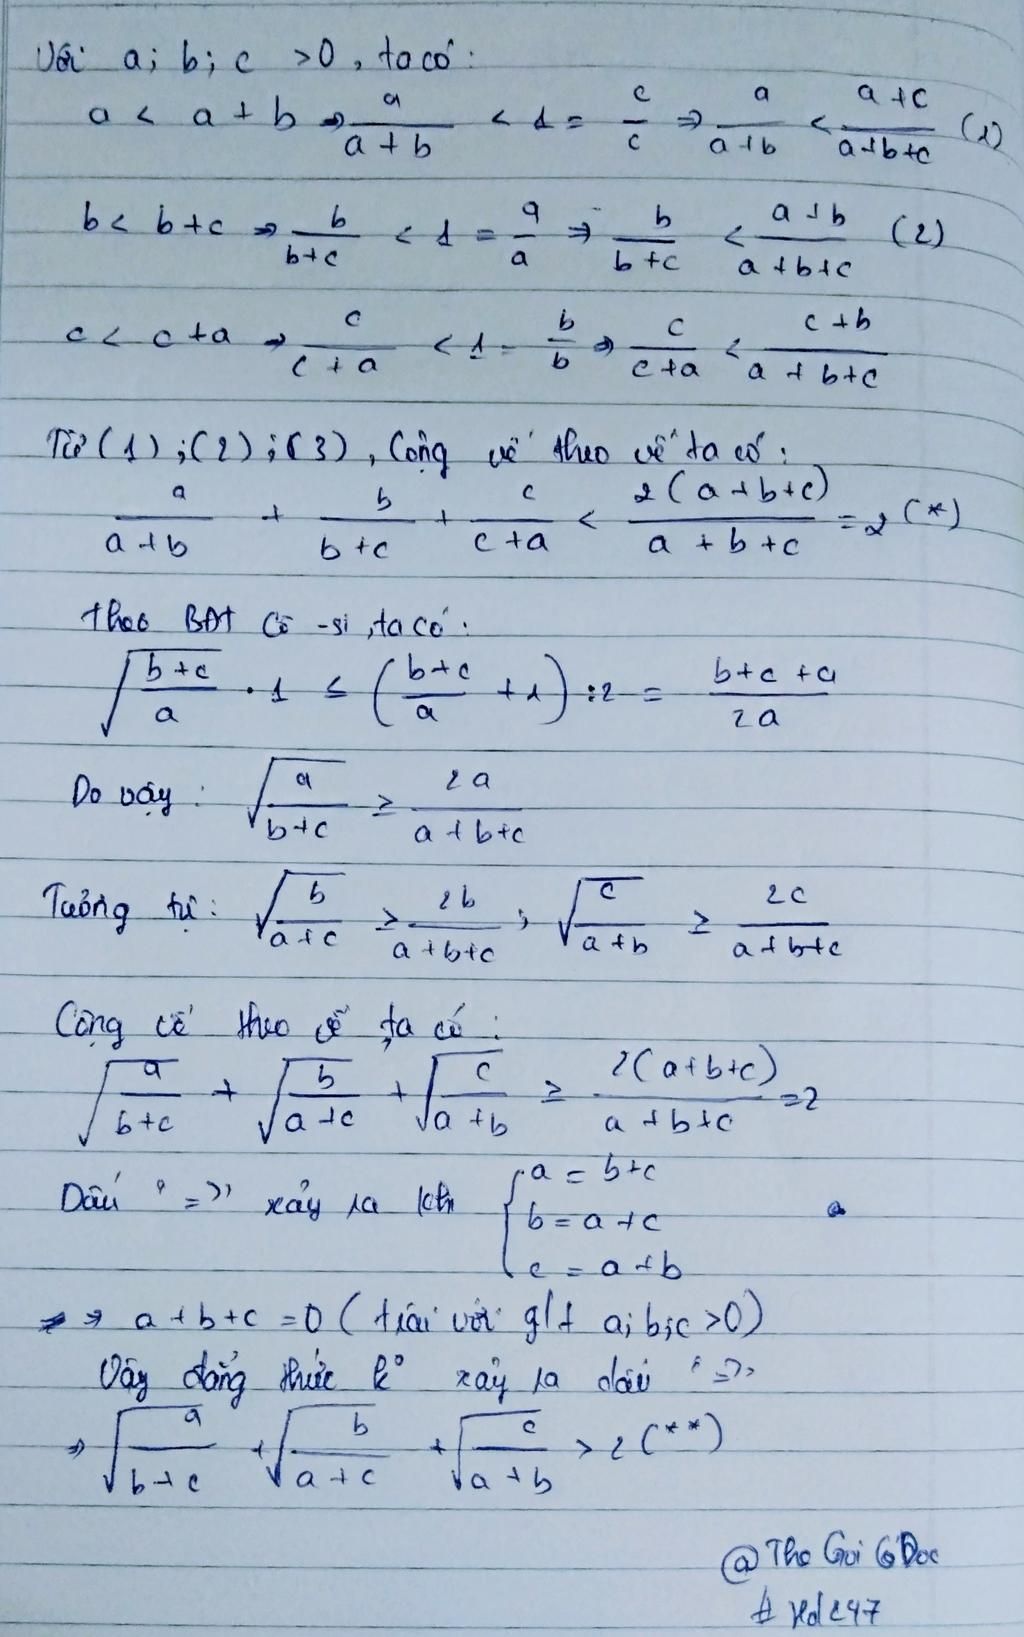 Với a; b; c > 0, ta có:
a < a + b ⇒ a/(a+b) < 1 = c/c ⇒ a/(a+b) < (a+c)/(a+b+c) (1)
b < b+c ⇒ b/(b+c) < 1 = a/a ⇒ b/(b+c) < (a+b)/(a+b+c) (2)
c < c+a ⇒ c/(c+a) < 1 = b/b ⇒ c/(c+a) < (c+b)/(a+b+c)
Từ (1); (2); (3), Cộng vế theo vế ta có:
a/(a+b) + b/(b+c) + c/(c+a) < 2(a+b+c)/(a+b+c) = 2 (*)
theo BĐT Cô-si, ta có:
√((b+c)/a) · 1 ≤ ((b+c)/a + 1) : 2 = (b+c+a)/2a
Do vậy: √(a/(b+c)) ≥ 2a/(a+b+c)
Tương tự: √(b/(a+c)) ≥ 2b/(a+b+c); √(c/(a+b)) ≥ 2c/(a+b+c)
Cộng vế theo vế ta có:
√(a/(b+c)) + √(b/(a+c)) + √(c/(a+b)) ≥ 2(a+b+c)/(a+b+c) = 2
Dấu "=" xảy ra khi { a = b+c
b = a+c
c = a+b
⇒ a+b+c = 0 (trái với g/t a; b; c > 0)
Vậy đẳng thức k° xảy ra dấu "="
⇒ √(a/(b+c)) + √(b/(a+c)) + √(c/(a+b)) > 2 (**)
@Tho Goi Doc
# Hdc247